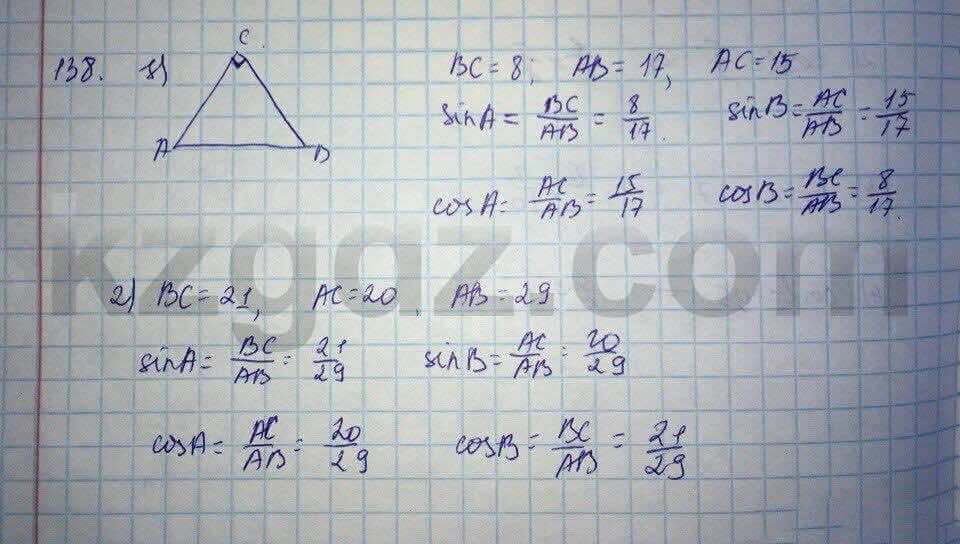 138. 1)
C
A B
BC = 8; AB = 17, AC = 15
sinA = BC/AB = 8/17. sinB = AC/AB = 15/17
cosA = AC/AB = 15/17 cosB = BC/AB = 8/17.
kzgaz.com
2) BC = 21, AC = 20, AB = 29
sinA = BC/AB = 21/29 sinB = AC/AB = 20/29
cosA = AC/AB = 20/29 cosB = BC/AB = 21/29